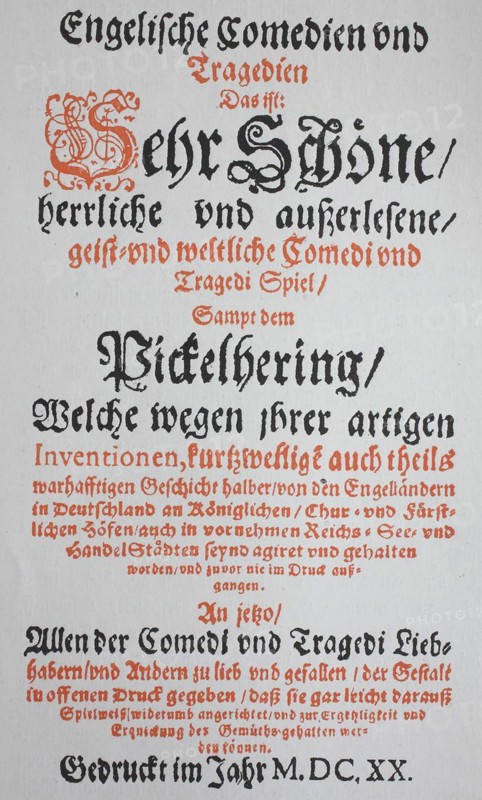 Engelische Comedien vnd
Tragedien
Das ist:
Sehr Schöne/
herrliche vnd außerlesene/
geist- vnd weltliche Comedi vnd
Tragedi Spiel/
Sampt dem
Pickelhering/
Welche wegen jhrer artigen
Inventionen, kurtzweiligẽ auch theils
warhafftigen Geschicht halber/von den Engelländern
in Deutschland an Königlichen/ Chur- vnd Fürst-
lichen Höfen/auch in vornehmen Reichs- See- vnd
HandelStädten seynd agiret vnd gehalten
worden/vnd zuvor nie im Druck auß-
gangen.
An jetzo/
Allen der Comedi vnd Tragedi Lieb-
habern/vnd Andern zu lieb vnd gefallen/ der Gestalt
in offenen Druck gegeben/ daß sie gar leicht darauß
Spielweiß widerumb angerichtet/vnd zur Ergetzligkeit vnd
Erquickung des Gemüths gehalten wer-
den können.
Gedruckt im Jahr M. DC, XX.